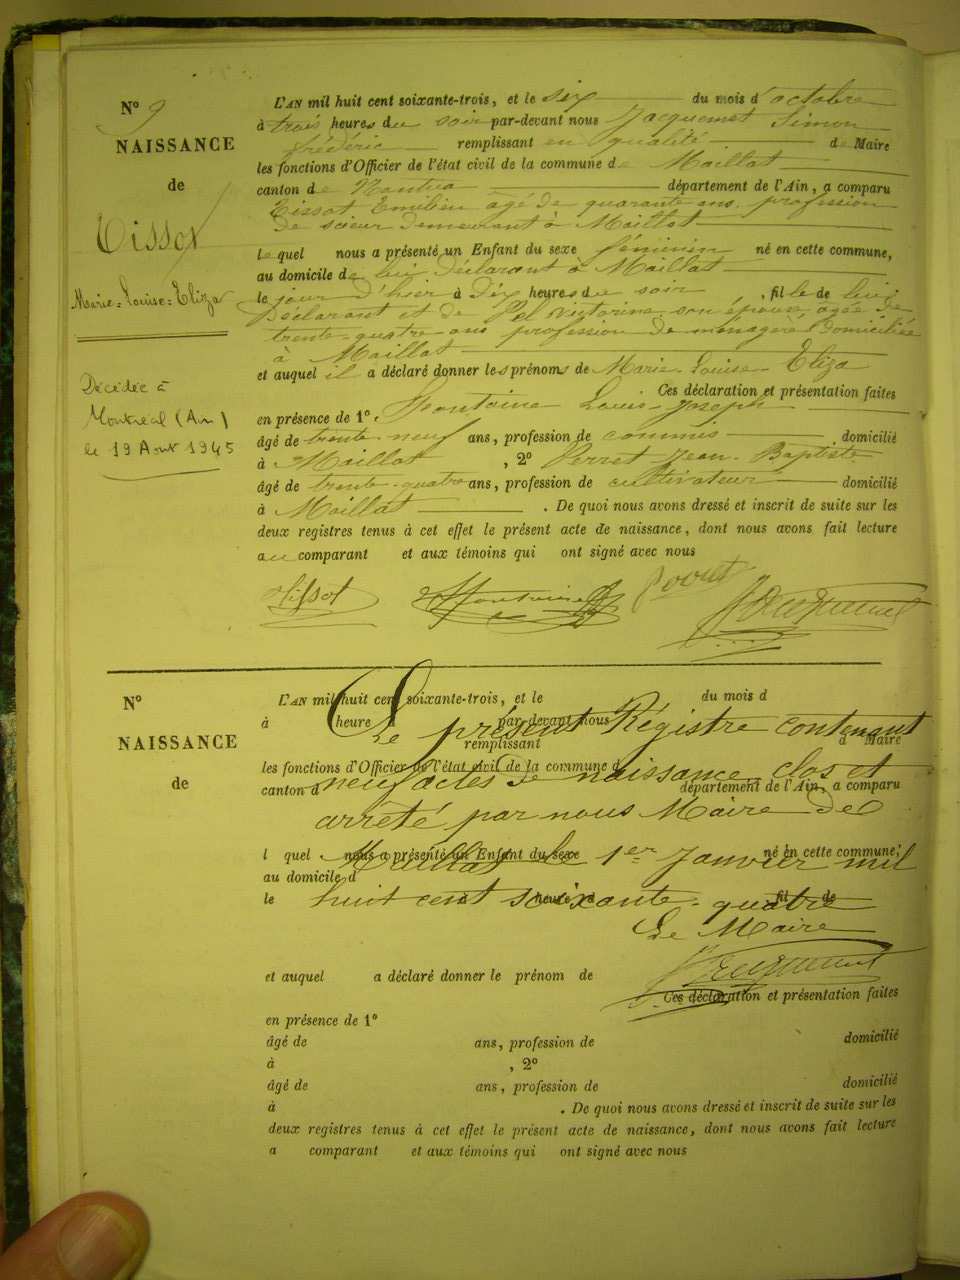 N° 9
NAISSANCE
de
Tissot
Marie-Louise-Eliza
Décédée à
Montréal (Ain)
le 19 Aout 1945
L'AN mil huit cent soixante-trois, et le six du mois d'octobre
à trois heures du soir par-devant nous Jacquemet Simon
frédéric remplissant en qualité de Maire
les fonctions d'Officier de l'état civil de la commune de Maillat
canton de Nantua département de l'Ain, a comparu
Tissot Emilien agé de quarante ans, profession
de scieur demeurant à Maillat
lequel nous a présenté un Enfant du sexe féminin né en cette commune,
au domicile de lui déclarant à Maillat
le jour d'hier à dix heures du soir, fille de lui
déclarant et de Victorine son épouse, agée de
trente-quatre ans profession de ménagère domiciliée
à Maillat
et auquel il a déclaré donner les prénoms de Marie-Louise-Eliza
Ces déclaration et présentation faites
en présence de 1°. Louis-Joseph
âgé de trente-neuf ans, profession de commis domicilié
à Maillat, 2° Perret Jean-Baptiste
âgé de trente-quatre ans, profession de cultivateur domicilié
à Maillat. De quoi nous avons dressé et inscrit de suite sur les
deux registres tenus à cet effet le présent acte de naissance, dont nous avons fait lecture
au comparant et aux témoins qui ont signé avec nous
Tissot Perret Jacquemet
N° NAISSANCE de
L'AN mil huit cent soixante-trois, et le du mois d
à heure d par-devant nous
Le présent Régistre contenant
remplissant d Maire
les fonctions d'Officier de l'état civil de la commune d
neuf actes de naissance, clos et
canton d département de l'Ain, a comparu
arrêté par nous Maire de
l quel nous a présenté un Enfant du sexe né en cette commune,
Maillat le 1er Janvier mil
au domicile d
le heure fil de
huit cent soixante-quatre
Le Maire
Jacquemet
et auquel a déclaré donner le prénom de
Ces déclaration et présentation faites
en présence de 1°
âgé de ans, profession de domicilié
à , 2°
âgé de ans, profession de domicilié
à . De quoi nous avons dressé et inscrit de suite sur les
deux registres tenus à cet effet le présent acte de naissance, dont nous avons fait lecture
a comparant et aux témoins qui ont signé avec nous